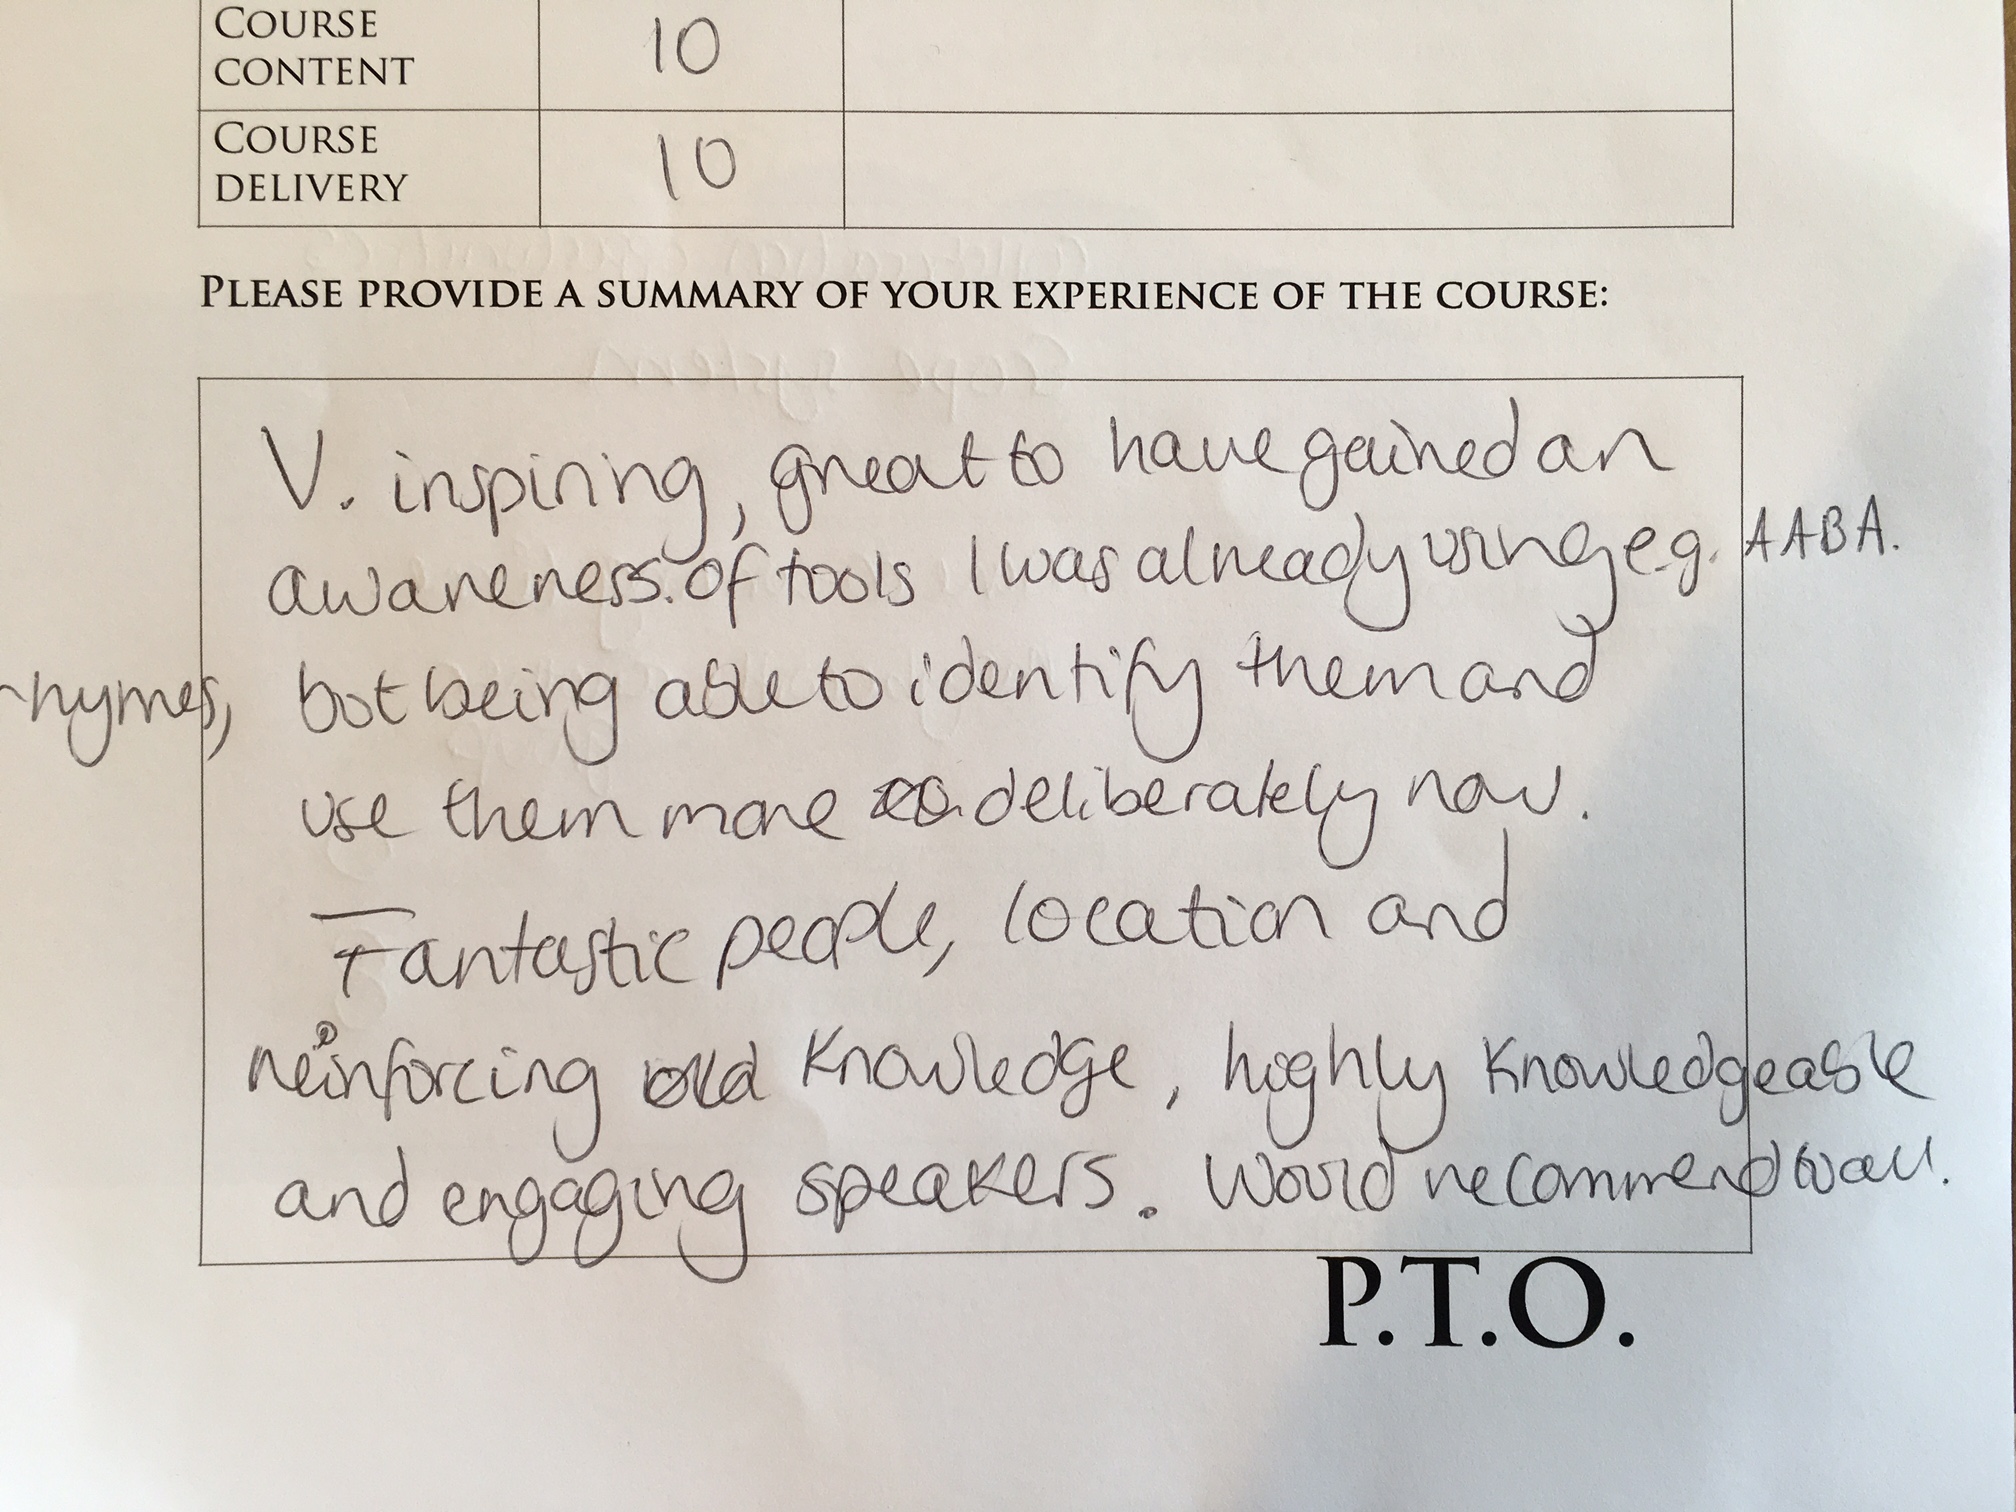 COURSE
CONTENT
10
COURSE
DELIVERY
10
PLEASE PROVIDE A SUMMARY OF YOUR EXPERIENCE OF THE COURSE:
V. inspiring, great to have gained an
awareness. of tools I was already using e.g. AABA.
rhymes, but being able to identify them and
use them more deliberately now.
Fantastic people, location and
reinforcing old knowledge, highly knowledgeable
and engaging speakers. Would recommend to all.
P.T.O.